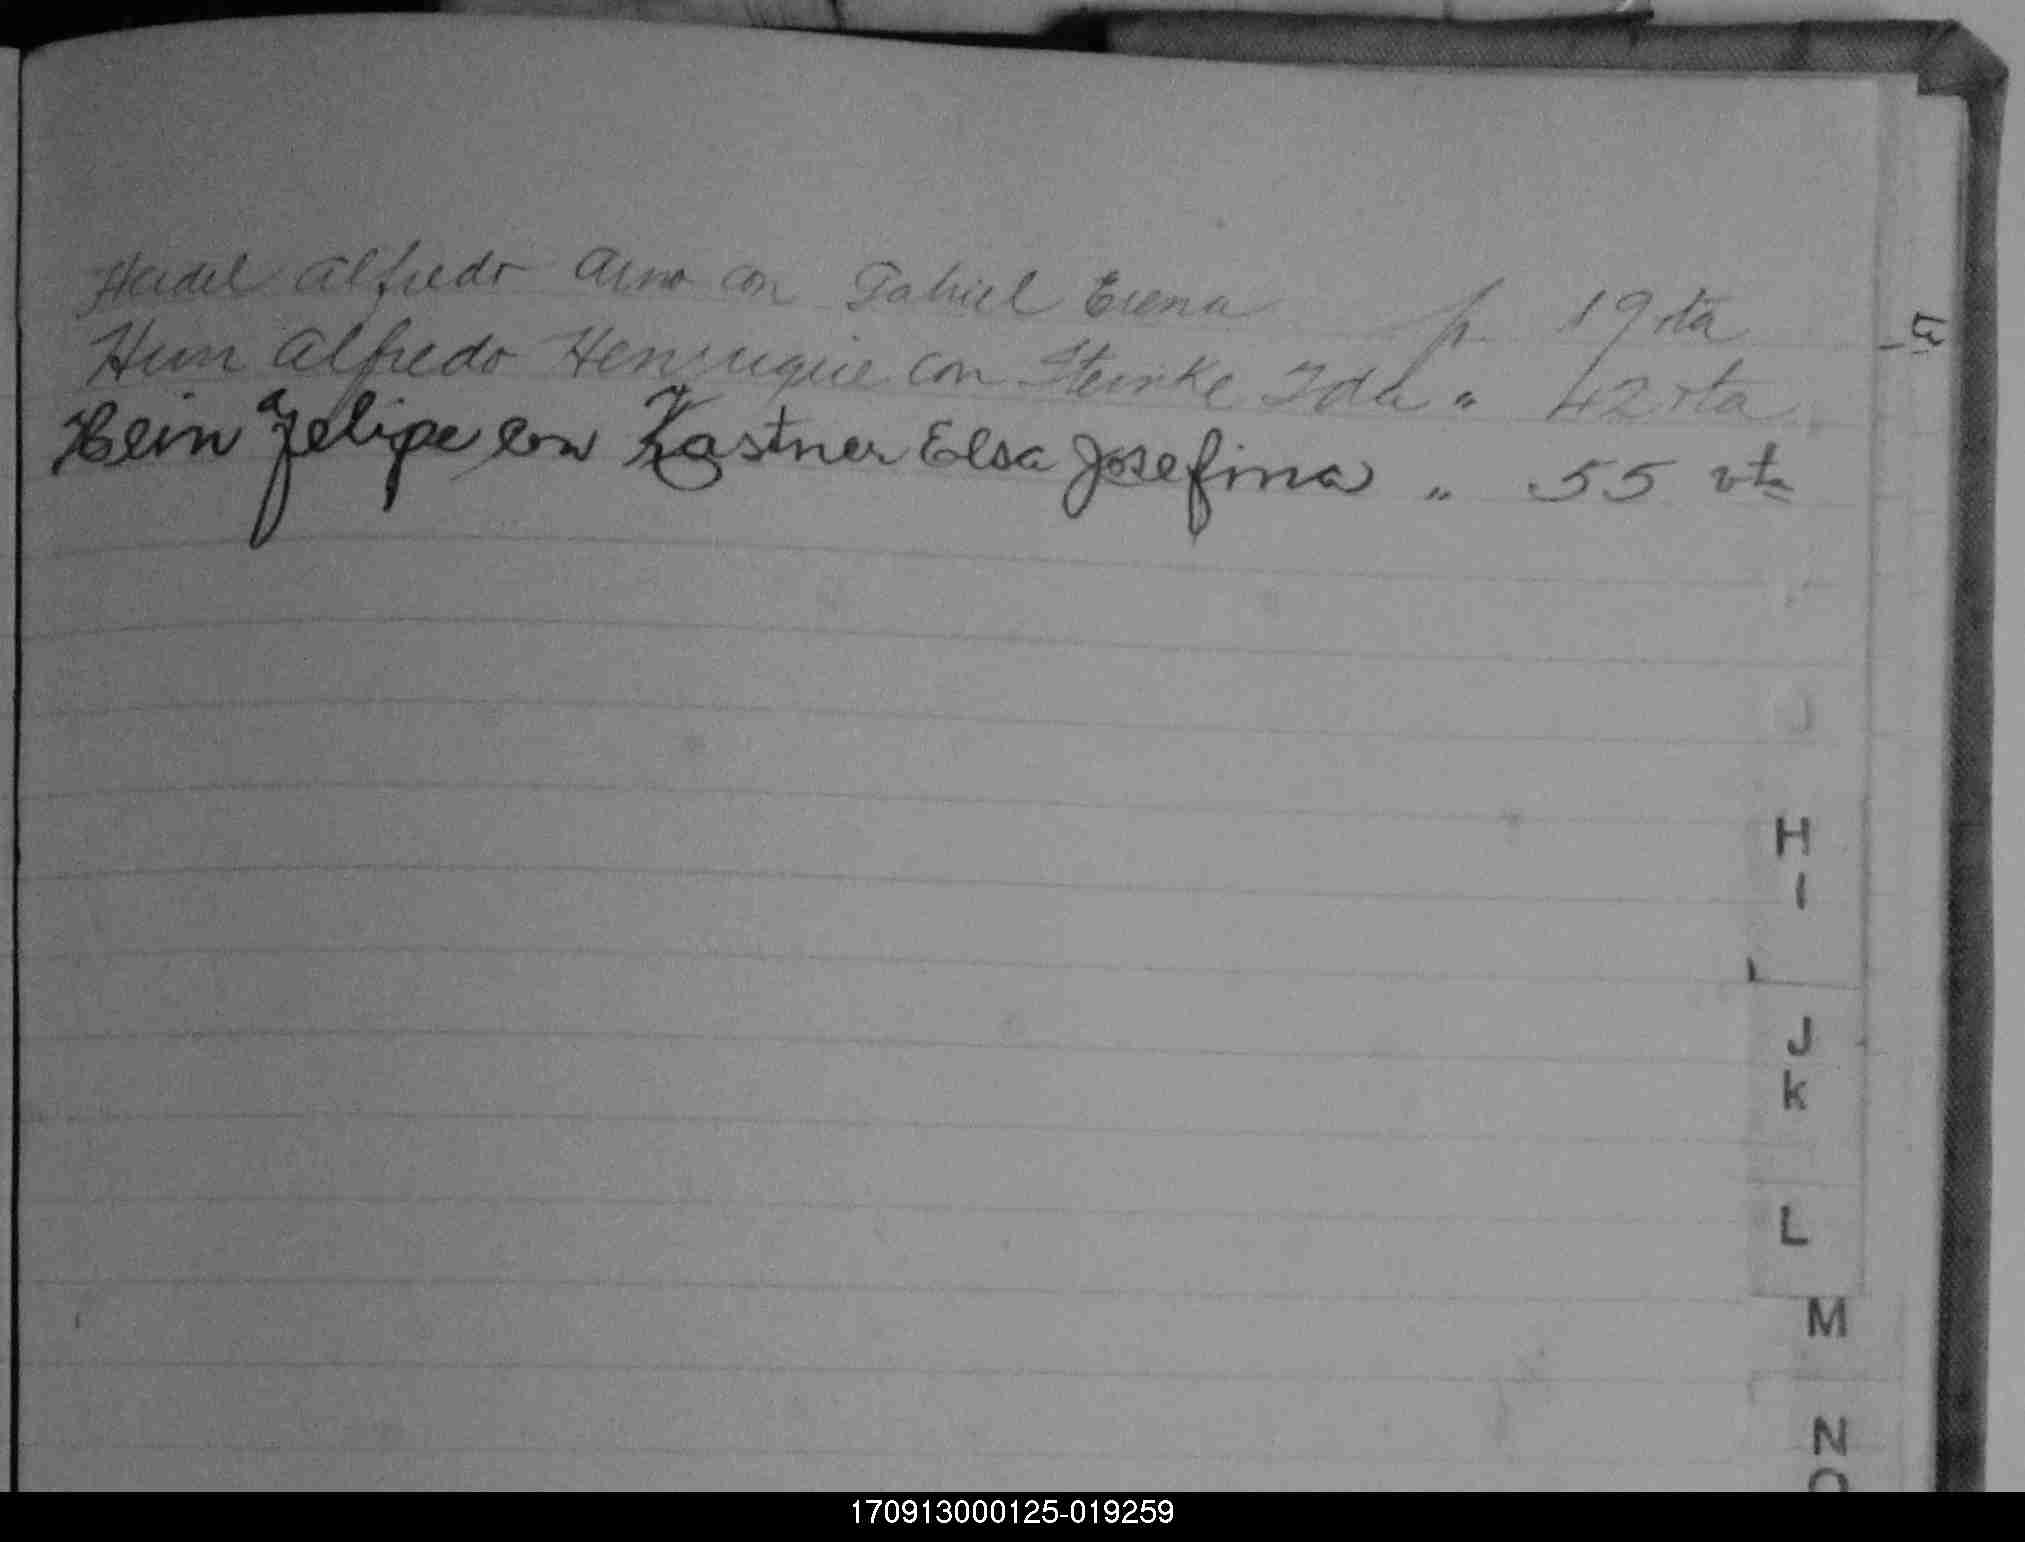 Heidel Alfredo Arno con Gabriel Erena p. 19 vta
Hein Alfredo Henrique con Steinke Ida " 42 vta
Hein Felipe con Kastner Elsa Josefina " 55 vta
H
I
J
K
L
M
N
O
170913000125-019259